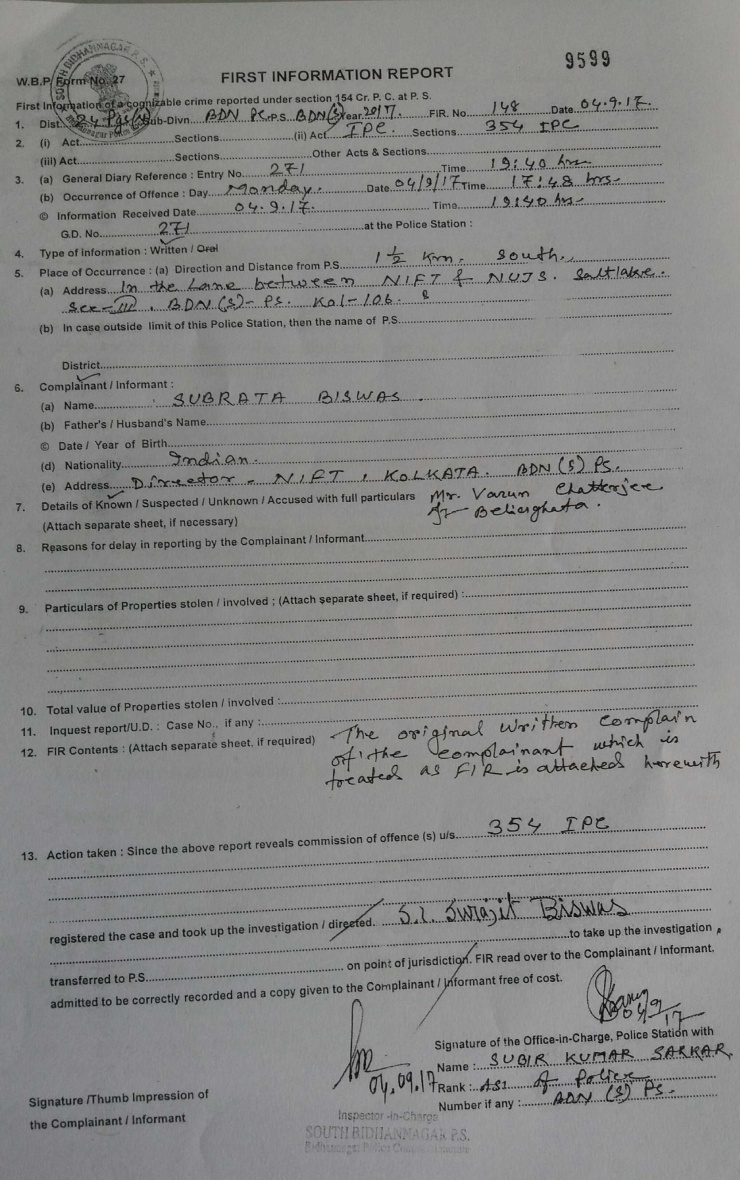 9599
SOUTH BIDHANNAGAR P.S.
W.B.P. Form No. 27
FIRST INFORMATION REPORT
First Information of a cognizable crime reported under section 154 Cr. P. C. at P. S.
1. Dist. 24 Pgs (N) Sub-Divn. BDN PC. P.S. BDN(S) Year 2017. FIR. No. 148 Date 04.9.17.
2. (i) Act Sections (ii) Act IPC. Sections 354 IPC
(iii) Act Sections Other Acts & Sections
3. (a) General Diary Reference : Entry No. 271 Time 19:40 hrs
(b) Occurrence of Offence : Day Monday. Date 04/9/17 Time 17:48 hrs-
© Information Received Date 04.9.17. Time 19:40 hrs-
G.D. No. 271 at the Police Station :
4. Type of information : Written / Oral
5. Place of Occurrence : (a) Direction and Distance from P.S. 1 1/2 Km. South.
(a) Address In the Lane between NIFT & NUJS. Saltlake.
Sec-III. BDN(S)- PS. Kol-106.
(b) In case outside limit of this Police Station, then the name of P.S.
District
6. Complainant / Informant :
(a) Name SUBRATA BISWAS.
(b) Father's / Husband's Name
© Date / Year of Birth
(d) Nationality Indian.
(e) Address Director - NIFT, KOLKATA. BDN (S) PS.
7. Details of Known / Suspected / Unknown / Accused with full particulars Mr. Varun Chatterjee
(Attach separate sheet, if necessary) Beliarghata.
8. Reasons for delay in reporting by the Complainant / Informant
9. Particulars of Properties stolen / involved ; (Attach separate sheet, if required) :
10. Total value of Properties stolen / involved :
11. Inquest report/U.D. : Case No., if any :
12. FIR Contents : (Attach separate sheet, if required) The original written complain
of the complainant which is
treated as FIR is attached herewith
13. Action taken : Since the above report reveals commission of offence (s) u/s. 354 IPC
registered the case and took up the investigation / directed. S.I. Surajit Biswas
to take up the investigation,
transferred to P.S. on point of jurisdiction. FIR read over to the Complainant / Informant.
admitted to be correctly recorded and a copy given to the Complainant / Informant free of cost.
04/9/17
Signature of the Office-in-Charge, Police Station with
04.09.17
Name : SUBIR KUMAR SARKAR,
Rank : ASI of Police
Number if any : BDN (S) PS.
Signature /Thumb Impression of
the Complainant / Informant
Inspector-in-Charge
SOUTH BIDHANNAGAR P.S.
Bidhannagar Police Commissionerate